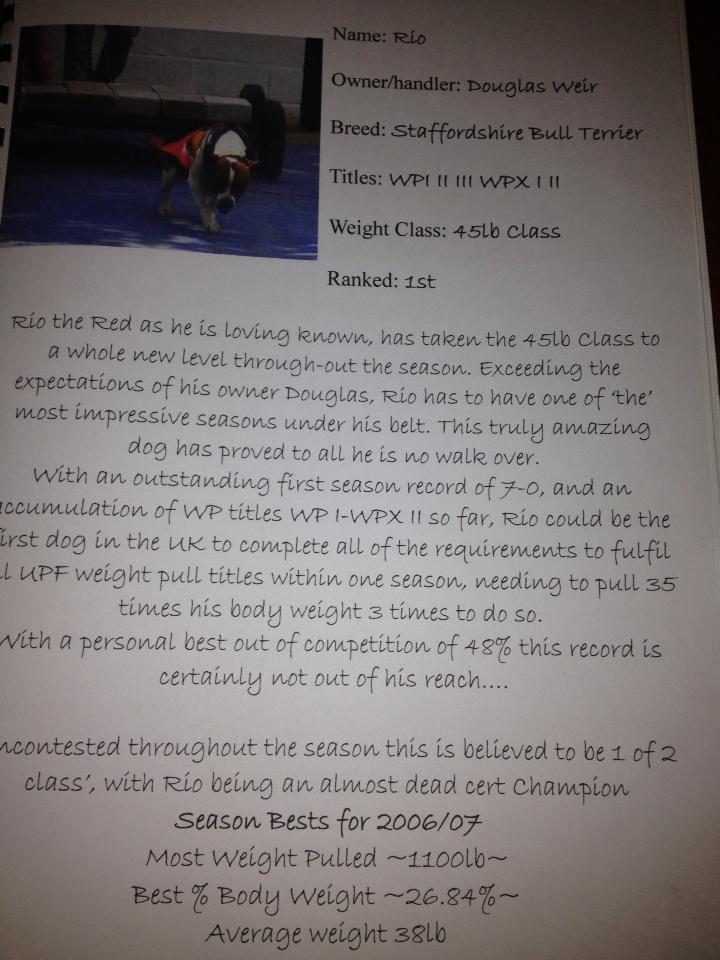 Name: Rio
Owner/handler: Douglas Weir
Breed: Staffordshire Bull Terrier
Titles: WPI II III WPX I II
Weight Class: 45lb Class
Ranked: 1st
Rio the Red as he is loving known, has taken the 45lb Class to
a whole new level through-out the season. Exceeding the
expectations of his owner Douglas, Rio has to have one of 'the'
most impressive seasons under his belt. This truly amazing
dog has proved to all he is no walk over.
With an outstanding first season record of 7-0, and an
accumulation of WP titles WP I-WPX II so far, Rio could be the
irst dog in the UK to complete all of the requirements to fulfil
ll UPF weight pull titles within one season, needing to pull 35
times his body weight 3 times to do so.
With a personal best out of competition of 48% this record is
certainly not out of his reach....
ncontested throughout the season this is believed to be 1 of 2
class', with Rio being an almost dead cert Champion
Season Bests for 2006/07
Most Weight Pulled ~1100lb~
Best % Body Weight ~26.84%~
Average weight 38lb